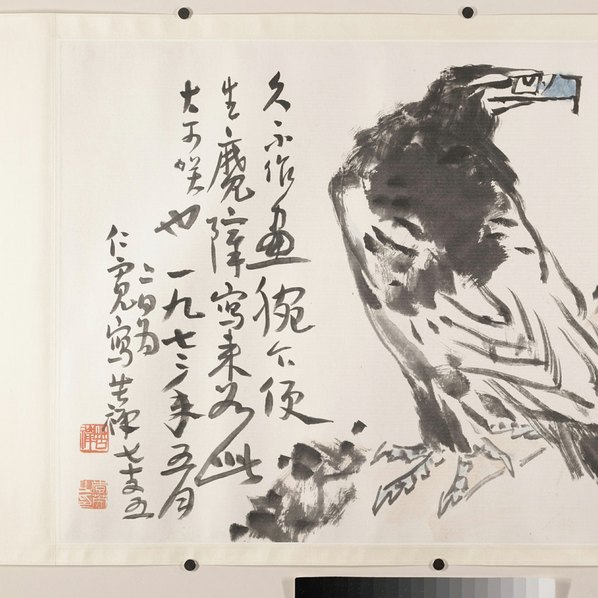 久不作画腕下便
生魔障寫来如此
大可咲也一九七三年五月
二日为
仁寬寫苦禅七十又五